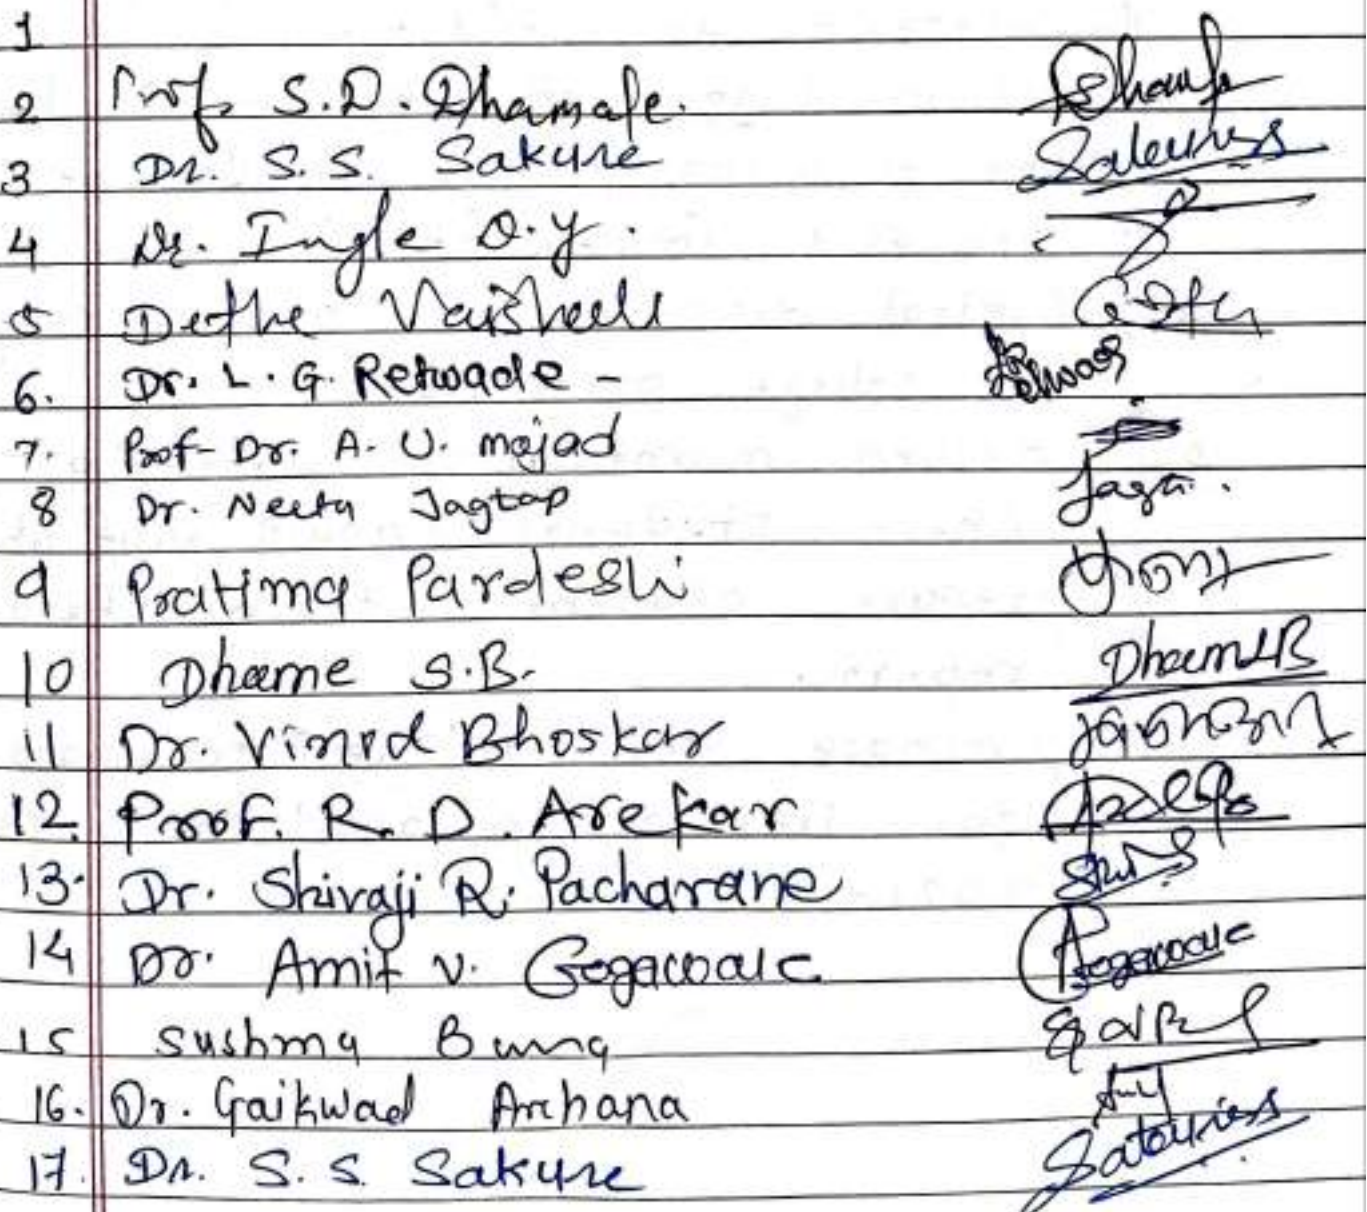 1
2 Prof. S.D. Dhamale.
3 Dr. S. S. Sakure Sakuress
4 Dr. Ingle O.Y.
5 Dethe Vaishali
6. Dr. L. G. Retwade -
7. Prof- Dr. A. U. mojad
8 Dr. Neeta Jagtap
9 Pratima Pardeshi
10 Dhame S.B. DhameSB
11 Dr. Vinod Bhoskar
12. Prof. R. D. Arekar
13. Dr. Shivaji R. Pacharane
14 Dr. Amit V. Gogawale Gogawale
15 Sushma
16. Dr. Gaikwad Archana
17. Dr. S. S. Sakure